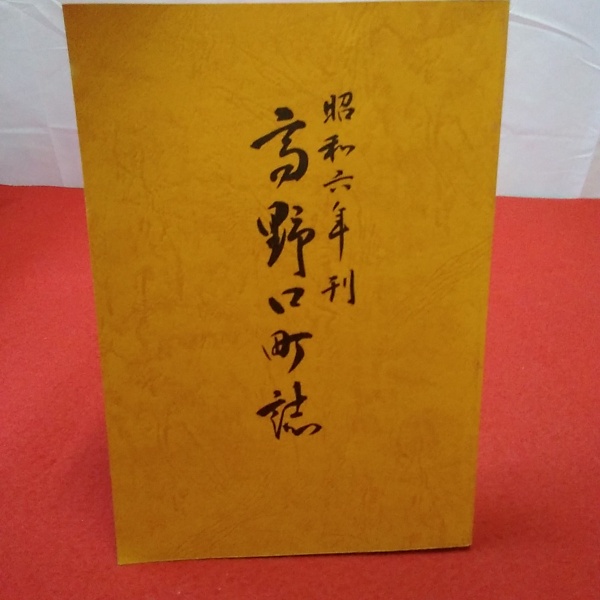 昭和六年刊
高野口町誌